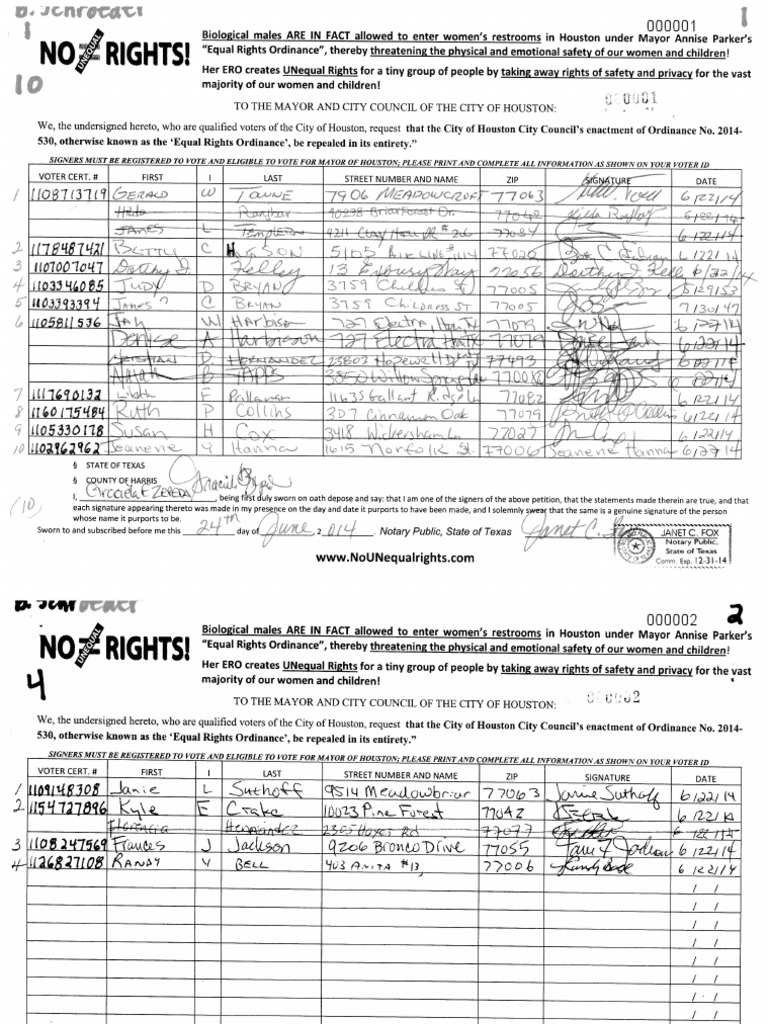 B. Schroeder
1
000001
1
NO UNEQUAL RIGHTS!
Biological males ARE IN FACT allowed to enter women's restrooms in Houston under Mayor Annise Parker's
"Equal Rights Ordinance", thereby threatening the physical and emotional safety of our women and children!
Her ERO creates UNequal Rights for a tiny group of people by taking away rights of safety and privacy for the vast
majority of our women and children!
10
TO THE MAYOR AND CITY COUNCIL OF THE CITY OF HOUSTON:
000001
We, the undersigned hereto, who are qualified voters of the City of Houston, request that the City of Houston City Council's enactment of Ordinance No. 2014-
530, otherwise known as the 'Equal Rights Ordinance', be repealed in its entirety."
SIGNERS MUST BE REGISTERED TO VOTE AND ELIGIBLE TO VOTE FOR MAYOR OF HOUSTON; PLEASE PRINT AND COMPLETE ALL INFORMATION AS SHOWN ON YOUR VOTER ID
VOTER CERT. # FIRST I LAST STREET NUMBER AND NAME ZIP SIGNATURE DATE
1 1108713719 GERALD W TOWNE 7906 MEADOWCROFT 77063 6/22/14
Hilda Ranjbar 10298 Briarforest Dr. 77042 6/22/14
JAMES L Templeton 4211 77084 6/22/14
2 1178487421 BETTY C HUDSON 5105 AIRLINE #1114 77022 6/22/14
3 1107007047 Dorothy J. Kelley 13 77056 6/22/14
4 1103346085 JUDY D BRYAN 3759 Childress St 77005
5 1103393394 James C BRYAN 3759 CHILDRESS ST 77005
6 1105811536 Jan W Harbison 727 Electra 77079 6/22/14
Denise A Harbison 727 Electra 77079 6/22/14
CHRISTIAN D. HERNANDEZ 23802 Hopewell 77493 6/22/14
B TAPPS 3850 Willow Springs 6/22/14
7 1117690132 E 11635 Gallant Ridge Ln 77082 6/22/14
8 1160175484 Ruth P Collins 307 Cinnamon Oak 77079 6/22/14
9 1105330178 Susan H Cox 3418 Wickersham Ln 77027 6/22/14
10 1102962962 Jeanenne Y Hanna 1615 Norfolk St. 77006 Jeanenne Hanna 6/22/14
§ STATE OF TEXAS
§ COUNTY OF HARRIS
(10) I, Graciela E ZEPEDA, being first duly sworn on oath depose and say: that I am one of the signers of the above petition, that the statements made therein are true, and that
each signature appearing thereto was made in my presence on the day and date it purports to have been made, and I solemnly swear that the same is a genuine signature of the person
whose name it purports to be.
Sworn to and subscribed before me this 24th day of June, 2014. Notary Public, State of Texas Janet C. Fox
JANET C. FOX
Notary Public,
State of Texas
Comm. Exp. 12-31-14
www.NoUNequalrights.com
B. Schroeder
000002
2
NO UNEQUAL RIGHTS!
Biological males ARE IN FACT allowed to enter women's restrooms in Houston under Mayor Annise Parker's
"Equal Rights Ordinance", thereby threatening the physical and emotional safety of our women and children!
Her ERO creates UNequal Rights for a tiny group of people by taking away rights of safety and privacy for the vast
majority of our women and children!
4
TO THE MAYOR AND CITY COUNCIL OF THE CITY OF HOUSTON:
000002
We, the undersigned hereto, who are qualified voters of the City of Houston, request that the City of Houston City Council's enactment of Ordinance No. 2014-
530, otherwise known as the 'Equal Rights Ordinance', be repealed in its entirety."
SIGNERS MUST BE REGISTERED TO VOTE AND ELIGIBLE TO VOTE FOR MAYOR OF HOUSTON; PLEASE PRINT AND COMPLETE ALL INFORMATION AS SHOWN ON YOUR VOTER ID
VOTER CERT. # FIRST I LAST STREET NUMBER AND NAME ZIP SIGNATURE DATE
1 1109148308 Janie L Suthoff 9514 Meadowbriar 77063 Janie Suthoff 6/22/14
2 1154727896 Kyle E Crake 10023 Pine Forest 77042 6/22/14
Florencia Hernandez 2305 Hayes Rd 77077 6/22/14
3 1108247569 Frances J Jackson 9206 Bronco Drive 77055 6/22/14
4 1126827108 RANDY V BELL 403 ANITA #13 77006 6/22/14
/ /
/ /
/ /
/ /
/ /
/ /
/ /
/ /